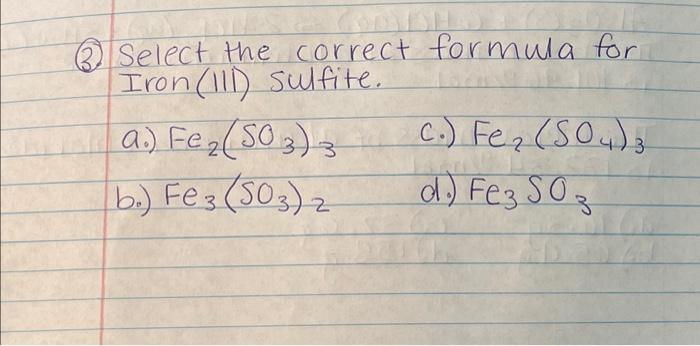 ③ Select the correct formula for
Iron(III) sulfite.
a.) Fe₂(SO₃)₃ c.) Fe₂(SO₄)₃
b.) Fe₃(SO₃)₂ d.) Fe₃SO₃